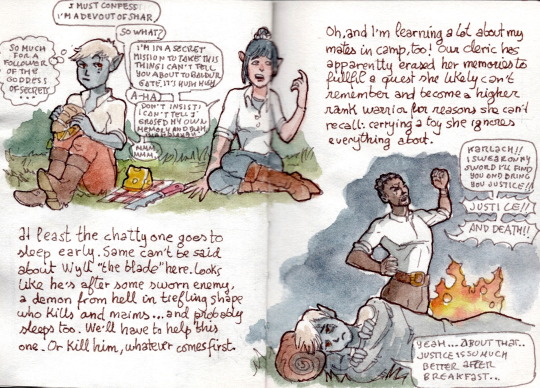 I MUST CONFESS!
I'M A DEVOUT OF SHAR
SO WHAT?
SO MUCH FOR A
FOLLOWER
OF THE
GODDESS
OF SECRETS...
I'M IN A SECRET
MISSION TO TAKE THIS
THING I CAN'T TELL
YOU ABOUT TO BALDUR
GATE, IT'S HUSH HUSH
A-HA
DON'T INSIST!
I CAN'T TELL I
ERASED MY OWN
MEMORY AND BLAH
BLAH BLAH
MMM
MMM
At least the chatty one goes to
sleep early. Same can't be said
about Wyll "the blade" here. Looks
like he's after some sworn enemy,
a demon from hell in tiefling shape
who kills and maims... and probably
sleeps too. We'll have to help this
one. Or kill him, whatever comes first.
Oh, and I'm learning a lot about my
mates in camp, too! Our cleric has
apparently erased her memories to
fulfill a quest she likely can't
remember and become a higher
rank warrior for reasons she can't
recall: carrying a toy she ignores
everything about.
KARLACH!!
I SWEAR ON MY
SWORD I'LL FIND
YOU AND BRING
YOU JUSTICE!!
JUSTICE!!
AND DEATH!!
YEAH... ABOUT THAT..
JUSTICE IS SO MUCH
BETTER AFTER
BREAKFAST...